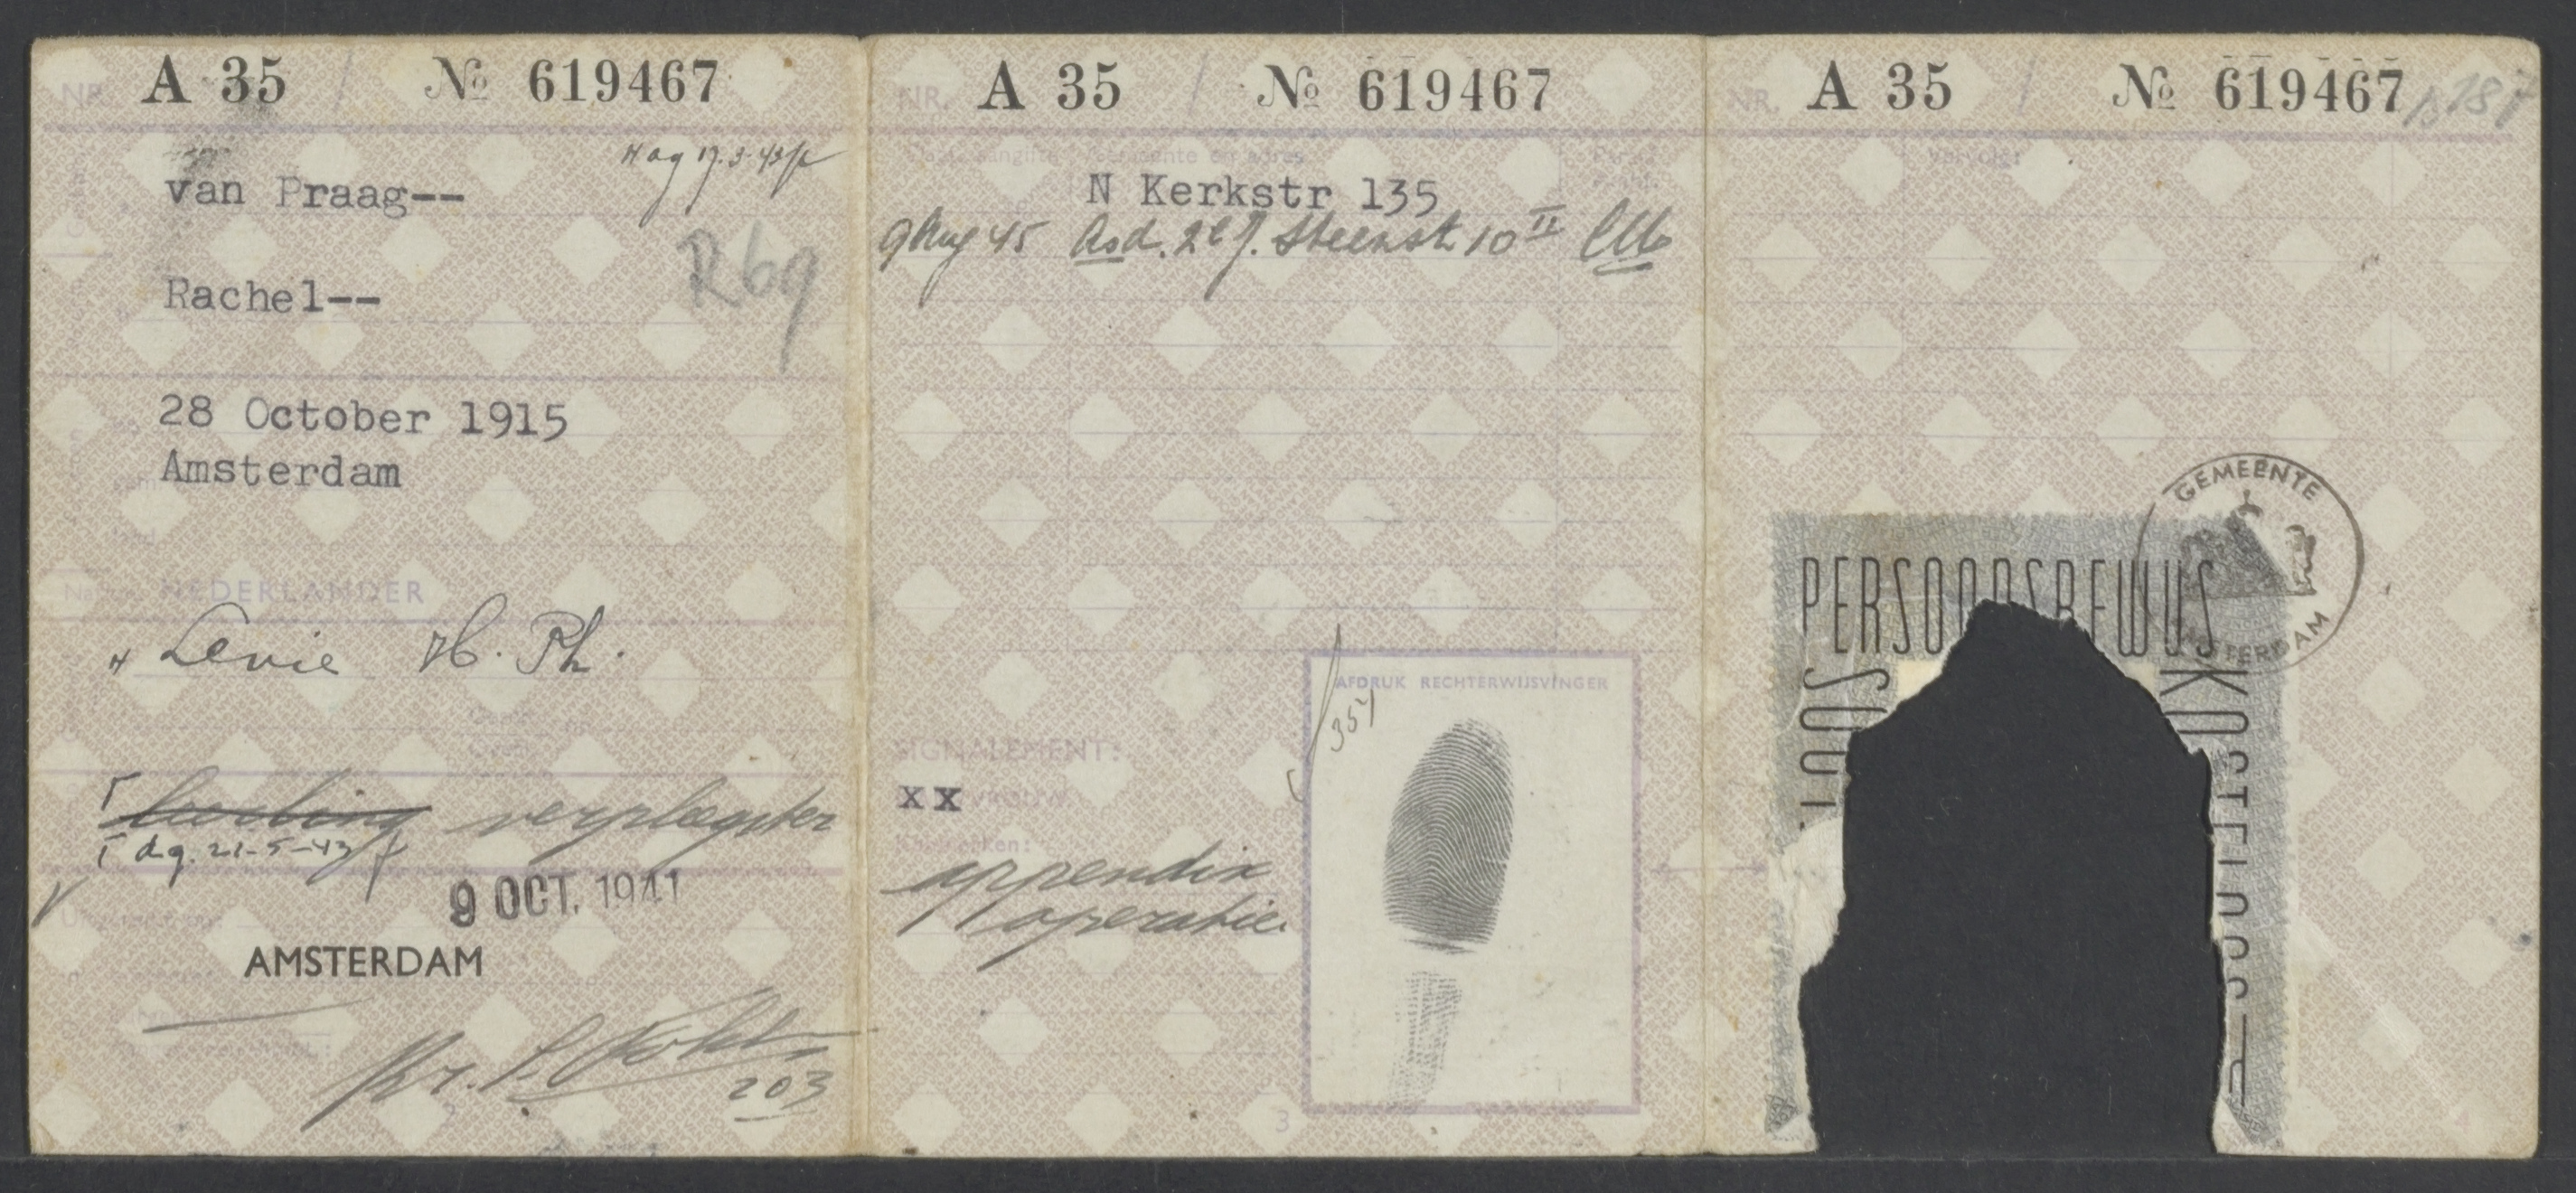 NR. A 35 / № 619467
H ag 17.3.43
van Praag--
R69
Rachel--
28 October 1915
Amsterdam
NEDERLANDER
H Levie H. Ph.
leerling verpleegster
dg. 21-5-43
9 OCT. 1941
AMSTERDAM
203
NR. A 35 / № 619467
gemeente en adres
N Kerkstr 135
9 Aug 45 Asd. 2e J. Steenstr 10 II
AFDRUK RECHTERWIJSVINGER
354
SIGNALEMENT:
XX VROUW
appendix
operatie
3
NR. A 35 / № 619467
Vervolg:
GEMEENTE
AMSTERDAM
PERSOONSBEWIJS
KOSTELOOS
4